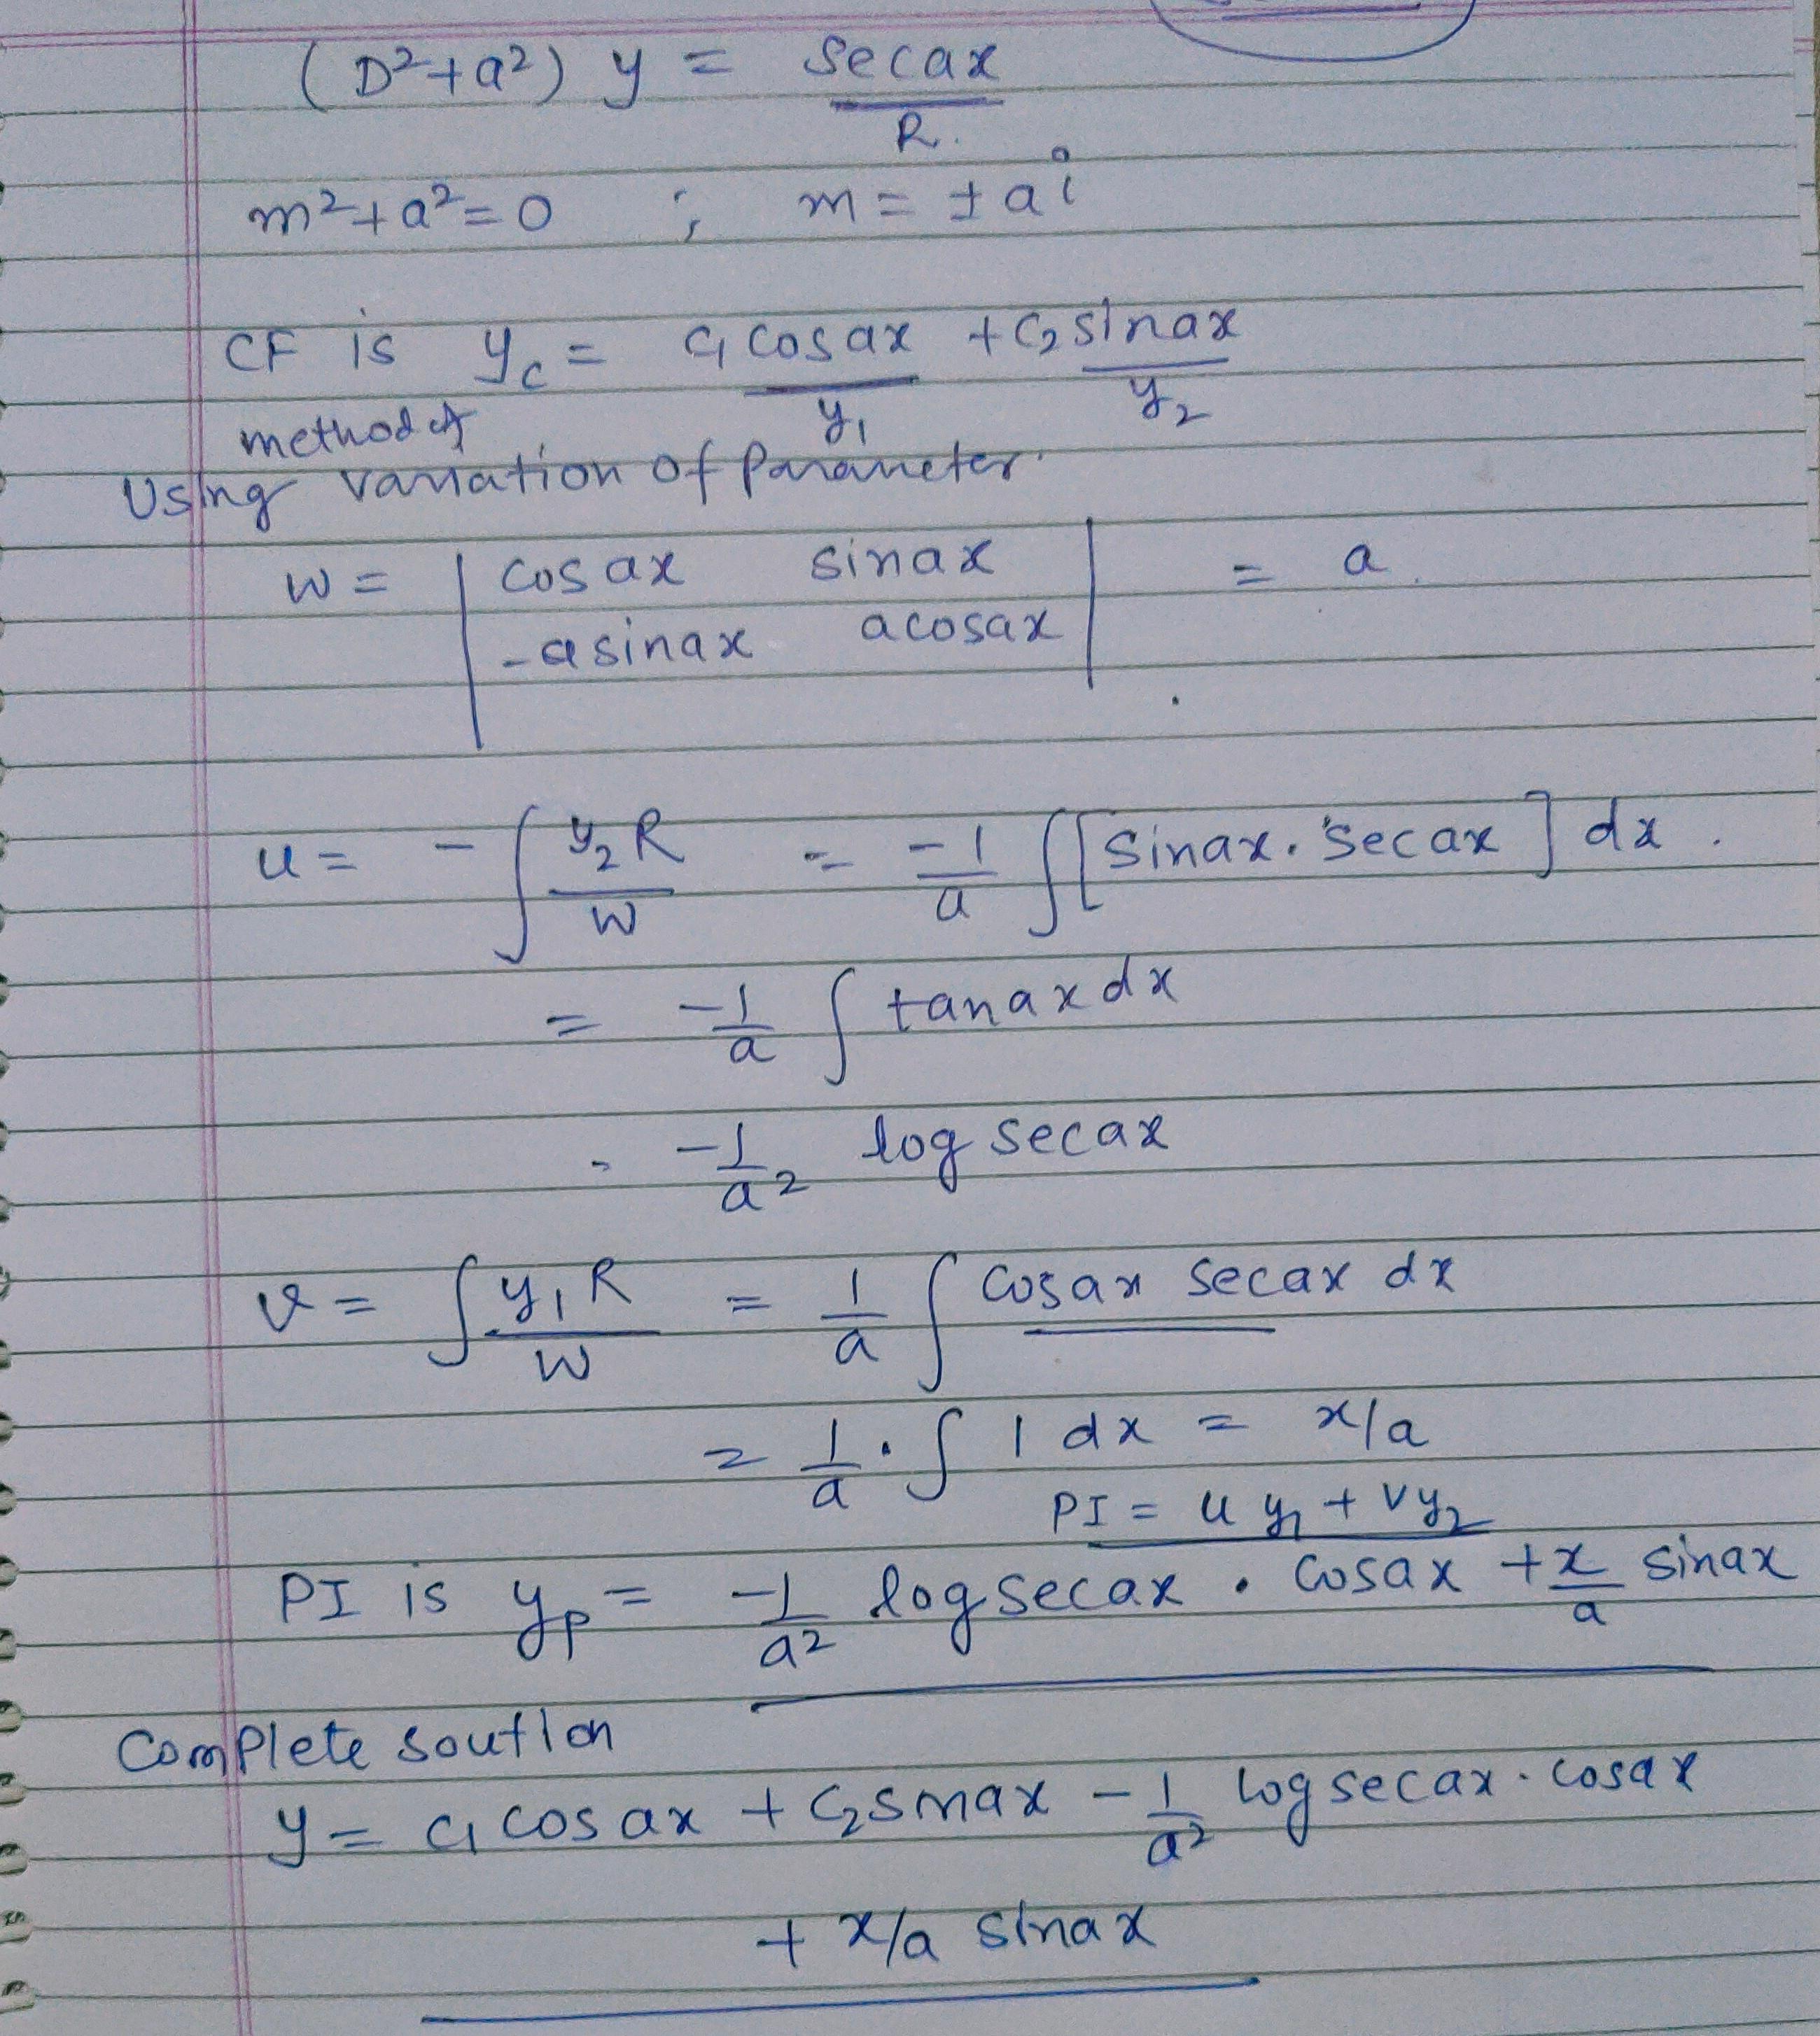 (D²+a²) y = secax
R.
m²+a²=0 ; m = ±ai
CF is y_c = c₁ cosax + c₂ sinax
y₁ y₂
method of
Using variation of Parameter.
W = | cosax sinax | = a.
| -asinax acosax |
u = - ∫ y₂R / W = -1/a ∫ [sinax. secax] dx.
= -1/a ∫ tanax dx
= -1/a² log secax
v = ∫ y₁R / W = 1/a ∫ cosax secax dx
= 1/a . ∫ 1 dx = x/a
PI = u y₁ + v y₂
PI is y_p = -1/a² log secax . cosax + x/a sinax
Complete soution
y = c₁ cosax + c₂ sinax - 1/a² log secax . cosax
+ x/a sinax